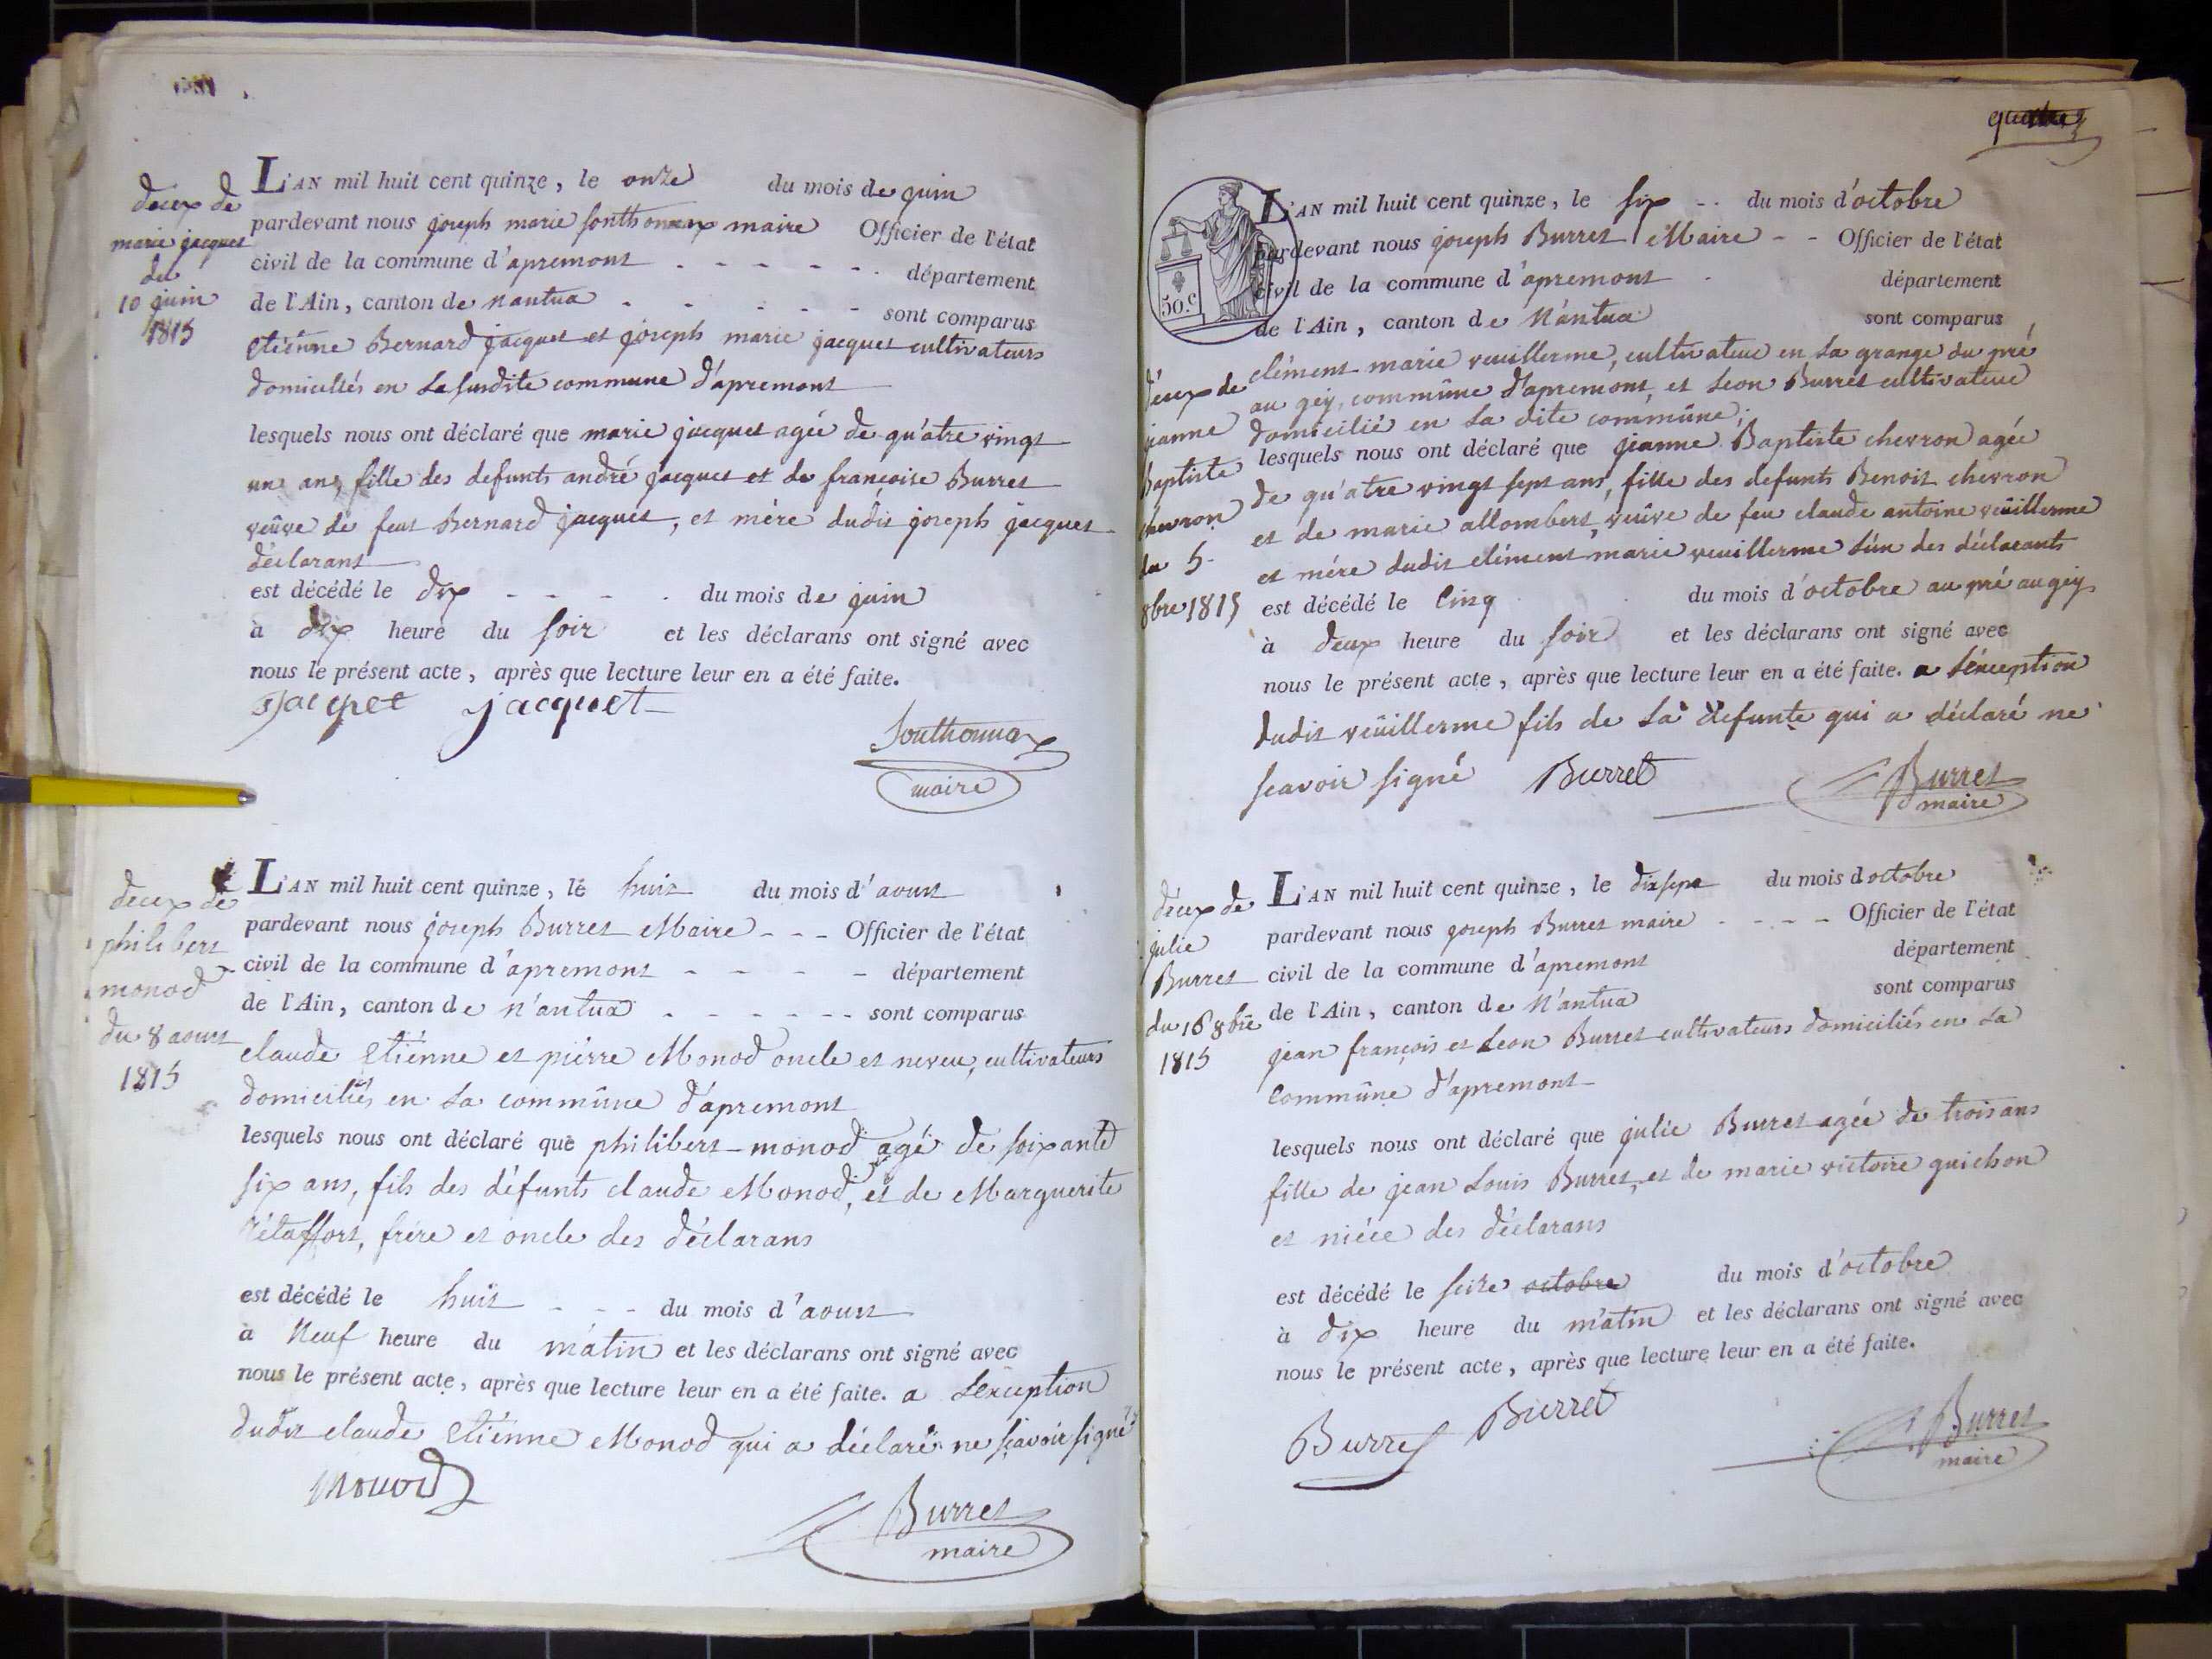 décés de
marie jacquet
du
10 juin
1815
L'AN mil huit cent quinze, le onze du mois de juin
pardevant nous joseph marie sonthonnax maire Officier de l'état
civil de la commune d'apremont - - - - - - département
de l'Ain, canton de nantua - - - - - sont comparus
etiénne Bernard jacquet et joseph marie jacquet cultivateurs
domiciliés en La susdite commune d'apremont
lesquels nous ont déclaré que marie jacquet agée de qu'atre vingt
un ans, fille des defunts andré jacquet et de françoise Burret
veûve de feut Bernard jacquet, et mére dudit joseph jacquet
déclarant
est décédé le dix - - - - du mois de juin
à dix heure du soir et les déclarans ont signé avec
nous le présent acte, après que lecture leur en a été faite.
Jacquet jacquet
Sonthonnax
maire
décés de
philibert
monod
du 8 aoust
1815
L'AN mil huit cent quinze, le huit du mois d'aoust
pardevant nous joseph Burret Maire - - - Officier de l'état
civil de la commune d'apremont - - - - département
de l'Ain, canton de N'antua - - - - - - sont comparus
claude Etiénne et piérre Monod oncle et neveu, cultivateurs
domiciliés en La commûne d'apremont
lesquels nous ont déclaré que philibert monod agé de soixante
six ans, fils des défunts claude Monod, et de Marguerite
frére et oncle des déclarans
est décédé le huit - - - du mois d'aoust
à Neuf heure du matin et les déclarans ont signé avec
nous le présent acte, après que lecture leur en a été faite. a Léxception
dudit claude Etiénne Monod qui a déclaré ne sçavoir signé
monod
Burret
maire
quatre
50.c
décés de
jeanne
Baptiste
chevron
du 5
8bre 1815
L'AN mil huit cent quinze, le six - - du mois d'octobre
pardevant nous joseph Burret Maire - - Officier de l'état
civil de la commune d'apremont - département
de l'Ain, canton de N'antua sont comparus
clément marie veuillerme, cultivateur en La grange du pré
au gey, commûne d'apremont, et Leon Burret cultivateur
domicilié en La dite commûne;
lesquels nous ont déclaré que jeanne Baptiste chevron agée
de qu'atre vingt sept ans, fille des defunts Benoit chevron
et de marie allombert, veûve de feu claude antoine veûillerme
et mére dudit clément marie veuillerme L'ûn des déclarants
est décédé le Cinq du mois d'octobre au pré au gey
à deux heure du soir et les déclarans ont signé avec
nous le présent acte, après que lecture leur en a été faite. a Léxception
dudit veûillerme fils de La defunte qui a déclaré ne
scavoir signé Burret
Burret
maire
décés de
julie
Burret
du 16 8bre
1815
L'AN mil huit cent quinze, le dix sept du mois d'octobre
pardevant nous joseph Burret maire - - - - Officier de l'état
civil de la commune d'apremont département
de l'Ain, canton de N'antua sont comparus
jean françois et Leon Burret cultivateurs domiciliés en La
Commûne d'apremont
lesquels nous ont déclaré que julie Burret agée de trois ans
fille de jean Louis Burret, et de marie victoire guichon
et niéce des déclarans
est décédé le seize octobre du mois d'octobre
à dix heure du matin et les déclarans ont signé avec
nous le présent acte, après que lecture leur en a été faite.
Burret Burret
Burret
maire